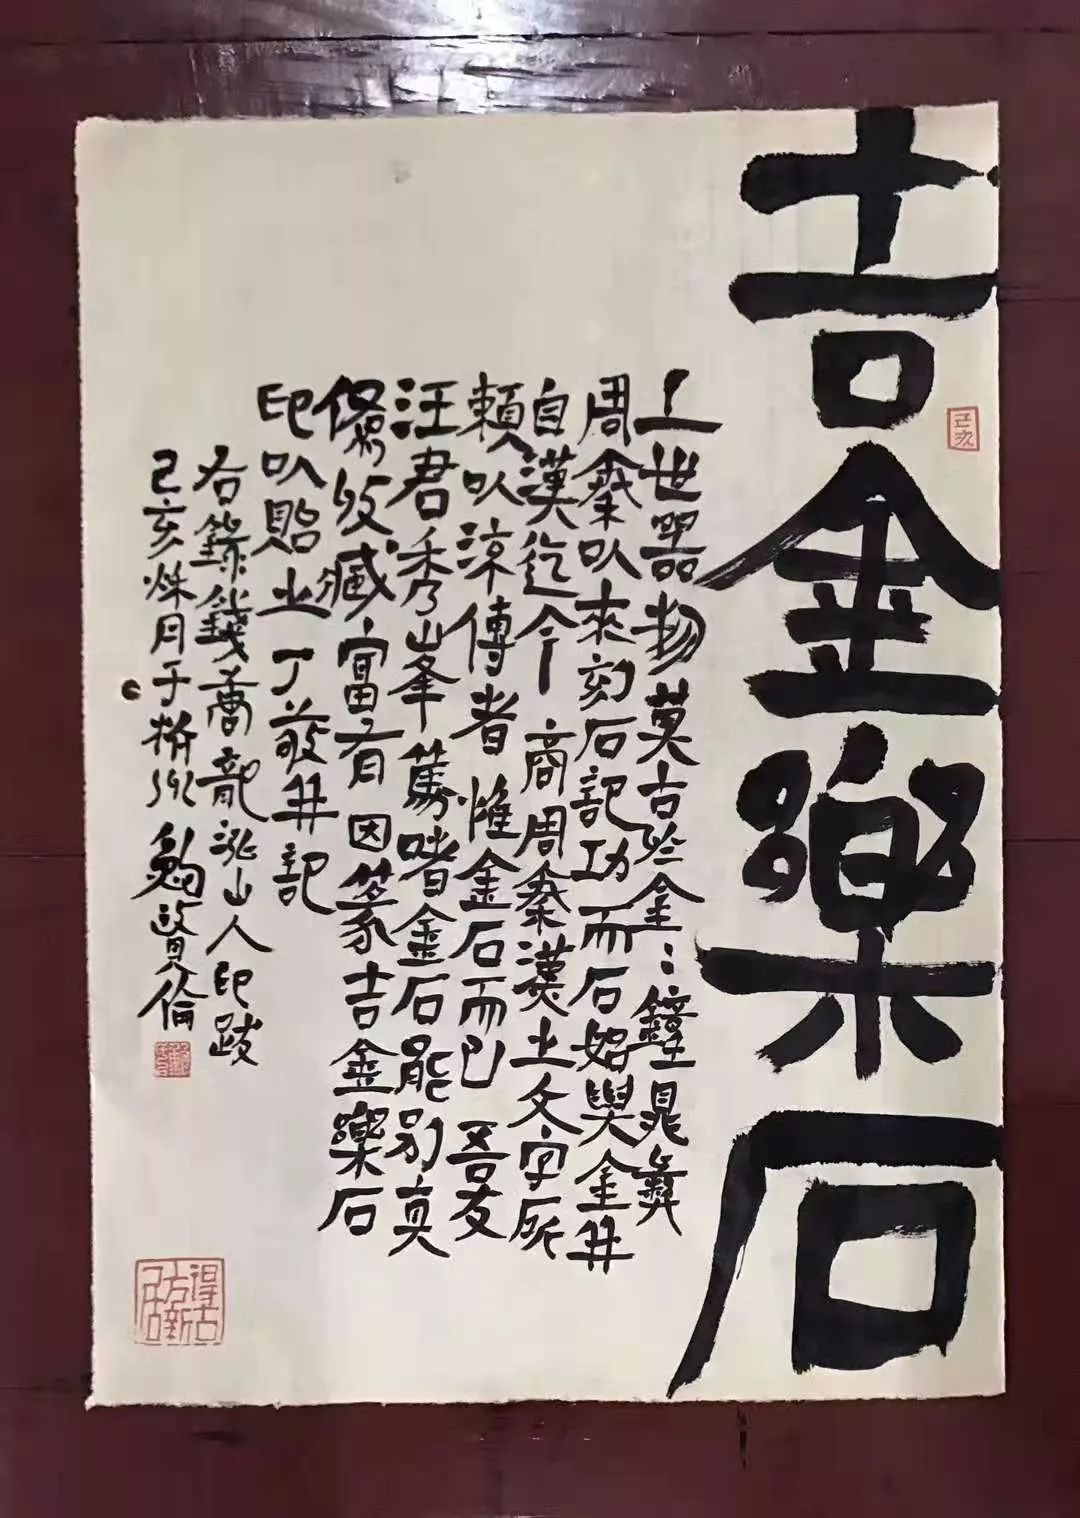 吉金樂石
己亥
上世器物莫古於金〻鐘鼎彝
周秦以來刻石記功而石始與金并
自漢迄今商周秦漢之文字所
賴以流傳者惟金石而已吾友
汪君秀峯篤嗜金石能別真
收藏富有因篆吉金樂石
印以貽之丁敬并記
右錄錢唐龍泓山人印跋
己亥秋月于州賢倫
得古方新居